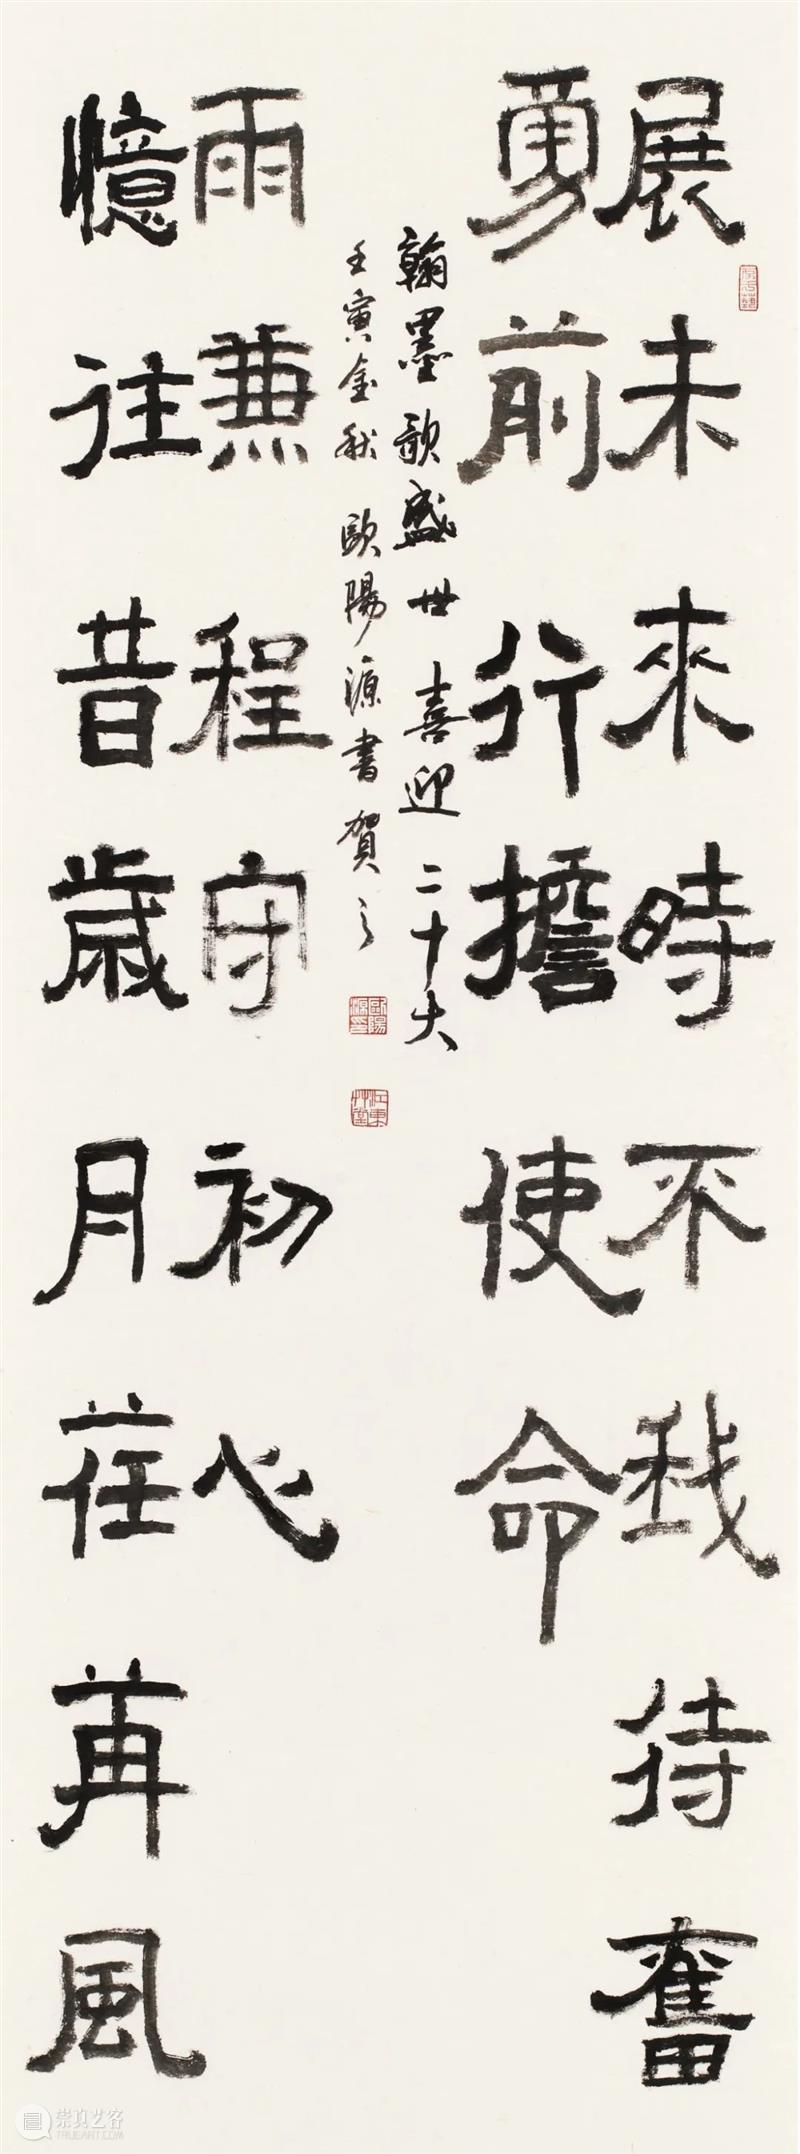 展未來時不我待奮
勇前行擔使命
憶往昔歲月荏苒風
雨兼程守初心
翰墨歌盛世喜迎二十大
壬寅金秋歐陽源書賀之
歐陽源印
崇真艺客
TRUEART.COM